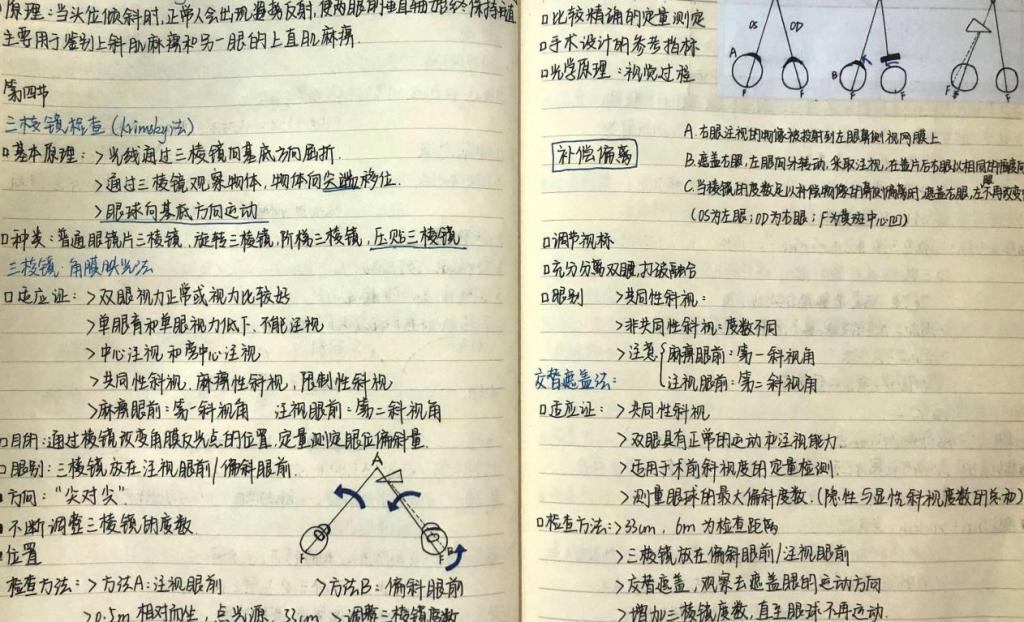 原理：当头位倾斜时，正常人会出现翻正反射，使两眼的垂直轴始终保持垂直
主要用于鉴别上斜肌麻痹和另一眼的上直肌麻痹.
第四节
三棱镜检查 (krimsky法)
基本原理：>光线通过三棱镜向基底方向屈折.
>通过三棱镜观察物体，物体向尖端移位.
>眼球向基底方向运动
种类：普通眼镜片三棱镜、旋转三棱镜，阶梯三棱镜，压贴三棱镜
三棱镜 角膜映光法
适应证：>双眼视力正常或视力比较好
>单眼盲和单眼视力低下、不能注视
>中心注视和旁中心注视
>共同性斜视，麻痹性斜视，限制性斜视
>麻痹眼前：第一斜视角 注视眼前：第二斜视角
目的：通过棱镜改变角膜反光点的位置，定量测定眼位偏斜量.
眼别：三棱镜放在注视眼前/偏斜眼前.
方向：“尖对尖”
不断调整三棱镜的度数.
位置
A
F
F
检查方法：>方法A：注视眼前 >方法B：偏斜眼前
>0.5m 相对而坐，点光源，33cm >调整三棱镜度数
比较精确的定量测定
手术设计的参考指标
光学原理：视觉过程
OS OD
A B
F F F F F F
补偿偏离
A.右眼注视的物像被投射到左眼鼻侧视网膜上
B.遮盖右眼，左眼向外转动，采取注视，在盖片后右眼以相同的幅度向
C.当棱镜的度数足以补偿物像的鼻侧偏离时，遮盖右眼，左眼不再改变
(OS为左眼；OD为右眼；F为黄斑中心凹)
调节视标
充分分离双眼，打破融合
眼别 >共同性斜视：
>非共同性斜视：度数不同
>注意 麻痹眼前：第一斜视角
注视眼前：第二斜视角
交替遮盖法：
适应证：>共同性斜视
>双眼具有正常的运动和注视能力.
>适用于术前斜视度的定量检测.
>测量眼球的最大偏斜度数.(隐性与显性斜视度数的总和)
检查方法：>33cm，6m为检查距离
>三棱镜放在偏斜眼前/注视眼前
>交替遮盖，观察去遮盖眼的运动方向
>增加三棱镜度数，直至眼球不再运动.